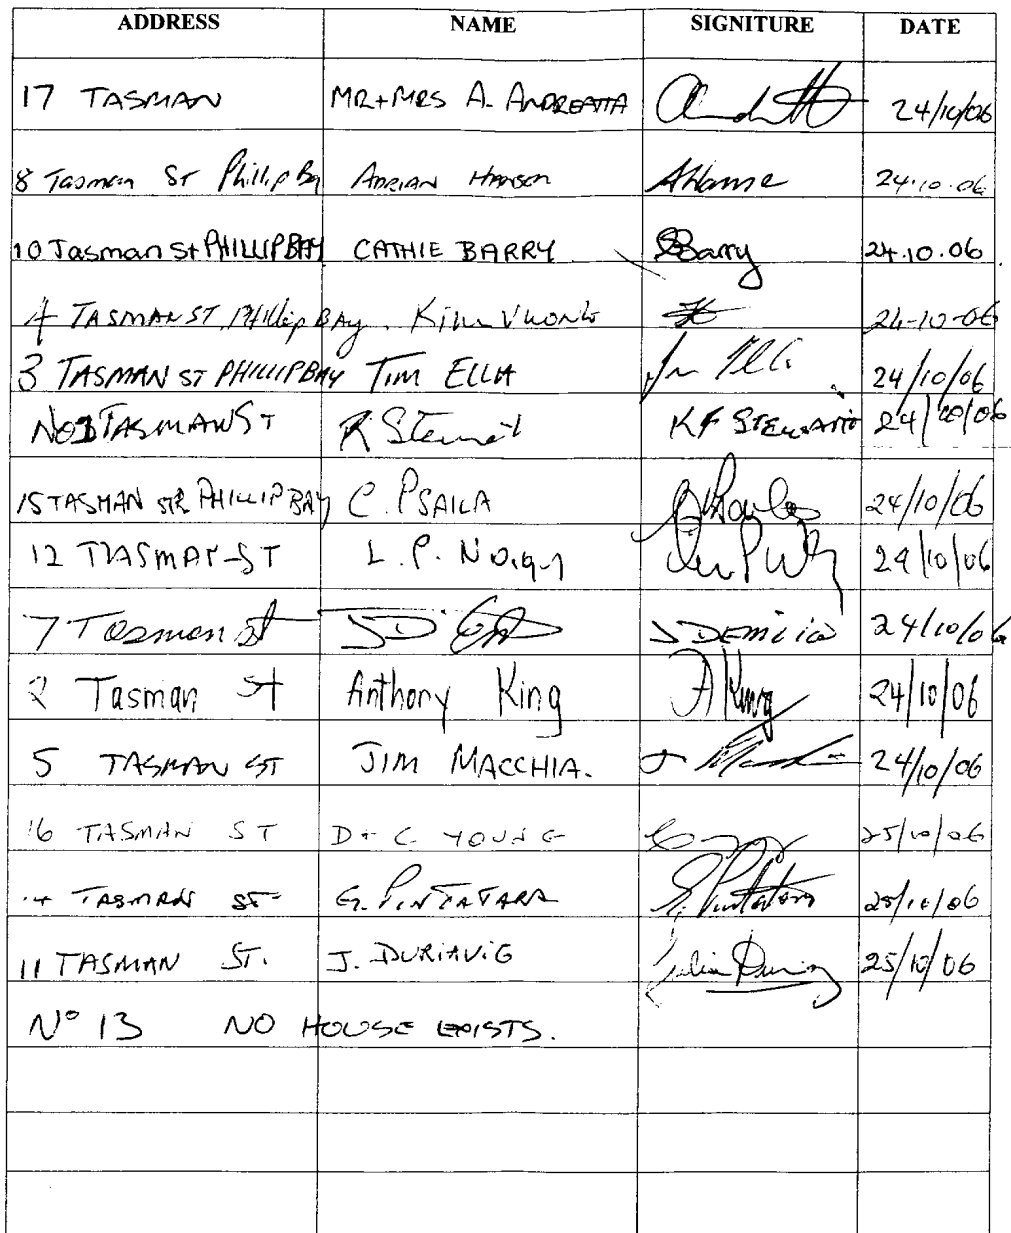 ADDRESS NAME SIGNITURE DATE
17 TASMAN MR+MRS A. ANDREATTA 24/10/06
8 Tasman St Phillip Bay ADRIAN HANSON 24.10.06
10 Tasman St PHILLIP BAY CATHIE BARRY Barry 24.10.06
4 TASMAN ST, Phillip BAy. Kim VUONG 24-10-06
3 TASMAN ST PHILLIP BAY TIM ELLA 24/10/06
No1 TASMAN ST R Stewart KF STEWART 24/10/06
15 TASMAN STR PHILLIP BAY C. PSAILA 24/10/06
12 TASMAN ST L. P. 24/10/06
7 Tasman st J DEMILIO 24/10/06
2 Tasman St Anthony King A King 24/10/06
5 TASMAN ST JIM MACCHIA. 24/10/06
16 TASMAN ST D + C YOUNG 25/10/06
14 TASMAN ST G. PINTATARA 25/10/06
11 TASMAN ST. J. DURIAVIG 25/10/06
No 13 NO HOUSE EXISTS.